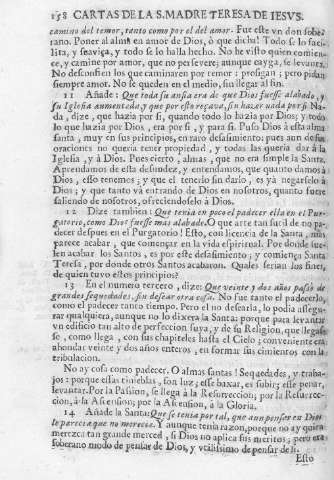 158 CARTAS DE LA S. MADRE TERESA DE IESVS.
camino del temor, tanto como por el del amor. Fue este vn don sobe-
rano. Poner al alma en amor de Dios, ò que dicha! Todo se lo faci-
lita, y suaviza, y todo se lo halla hecho. No he visto quien comien-
ce, y camine por amor, que no persevere; aunque cayga, se levanta.
No desconfien los que caminaren por temor: prosigan; pero pidan
siempre amor. No se queden en el medio, sin llegar al fin.
11 Añade: Que toda su ansia era de que Dios fuesse alabado, y
su Iglesia aumentada, y que por esto reçava, sin hazer nada por sì Na-
da, dize, que hazia por si, quando todo lo hazia por Dios; y todo
lo que hazia por Dios, era por si, y para si. Puso Dios à esta alma
santa, muy en sus principios, en raro desasimiento; pues aun de sus
oraciones no queria tener propiedad, y todas las queria dàr à la
Iglesia, y à Dios. Pues cierto, almas, que no era simple la Santa.
Aprendamos de esta desnudez, y entendamos, que quanto damos à
Dios, esso tenemos; y que el tenerlo sin darlo, es yà negarselo à
Dios; y que tanto và entrando de Dios en nosotros, quanto fuere
saliendo de nosotros, ofreciendoselo à Dios.
12 Dize tambien: Que tenia en poco el padecer ella en el Pur-
gatorio, como Dios fuesse mas alabado. O que arte tan sutil de no pa-
decer despues en el Purgatorio! Esto, con licencia de la Santa, mas
parece acabar, que començar en la vida espiritual. Por donde sue-
len acabar los Santos, es por este desasimiento; y comiença Santa
Teresa, por donde otros Santos acabaron. Quales serian los fines,
de quien tuvo estos principios?
13 En el numero tercero, dize: Que veinte y dos años passò de
grandes sequedades, sin desear otra cosa. No fue tanto el padecerlo,
como el padecer tanto tiempo. Pero el no desearla, lo podia assegu-
rar qualquiera, aunque no lo dixera la Santa: porque para levantar
vn edificio tan alto de perfeccion suya, y de su Religion, que llegasse
se, como llega, con sus chapiteles hasta el Cielo; conveniente era
ahondar veinte y dos años enteros, en formar sus cimientos con la
tribulacion.
No ay cosa como padecer. O almas santas! Sequedades, y traba-
jos: porque estas tinieblas, son luz; esse baxar, es subir; esse penar,
levantar. Por la Passion, se llega à la Resurreccion; por la Resurrec-
cion, à la Ascension; por la Ascension, à la Gloria.
14 Añade la Santa: Que se tenia por tal, que aun pensar en Dios
le parecia que no merecia. Y aunque tenia razon, porque no ay quien
merezca tan grande merced, si Dios no aplica sus meritos; pero era
soberano modo de pensar de Dios, y vtilissimo de pensar de si.
Esto